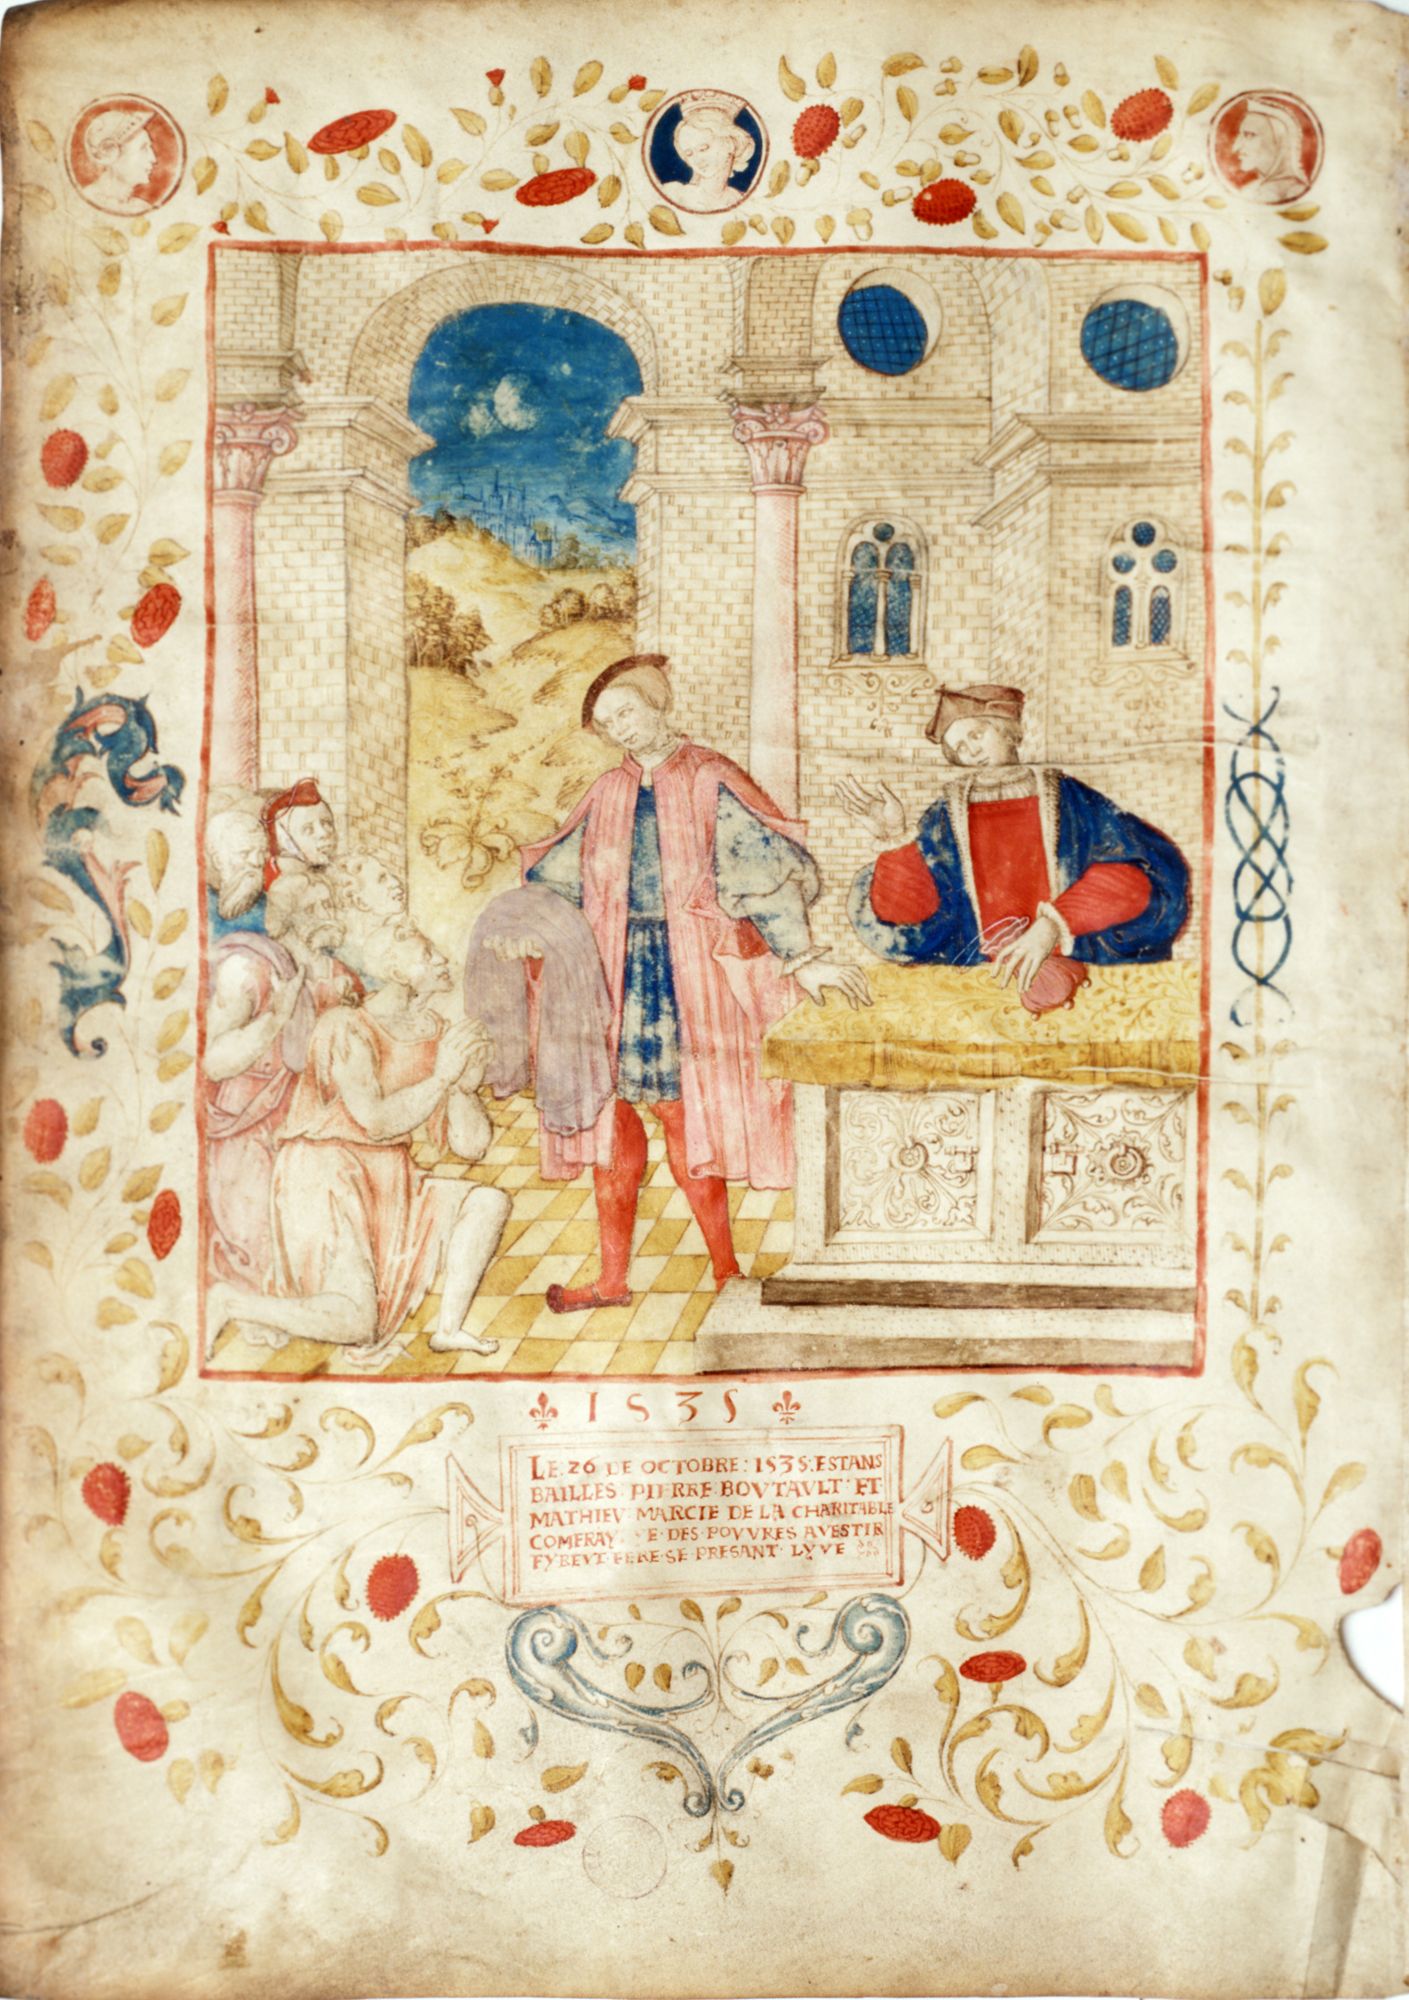 1535
LE·26 DE OCTOBRE: 1535·ESTANS
BAILLES PIERRE·BOVTAVLT·ET
MATHIEV MARCIE DE LA CHARITABLE
COMFRAY E·DES·POVVRES AVESTIR
FERE·SE·PRESANT·LYVE